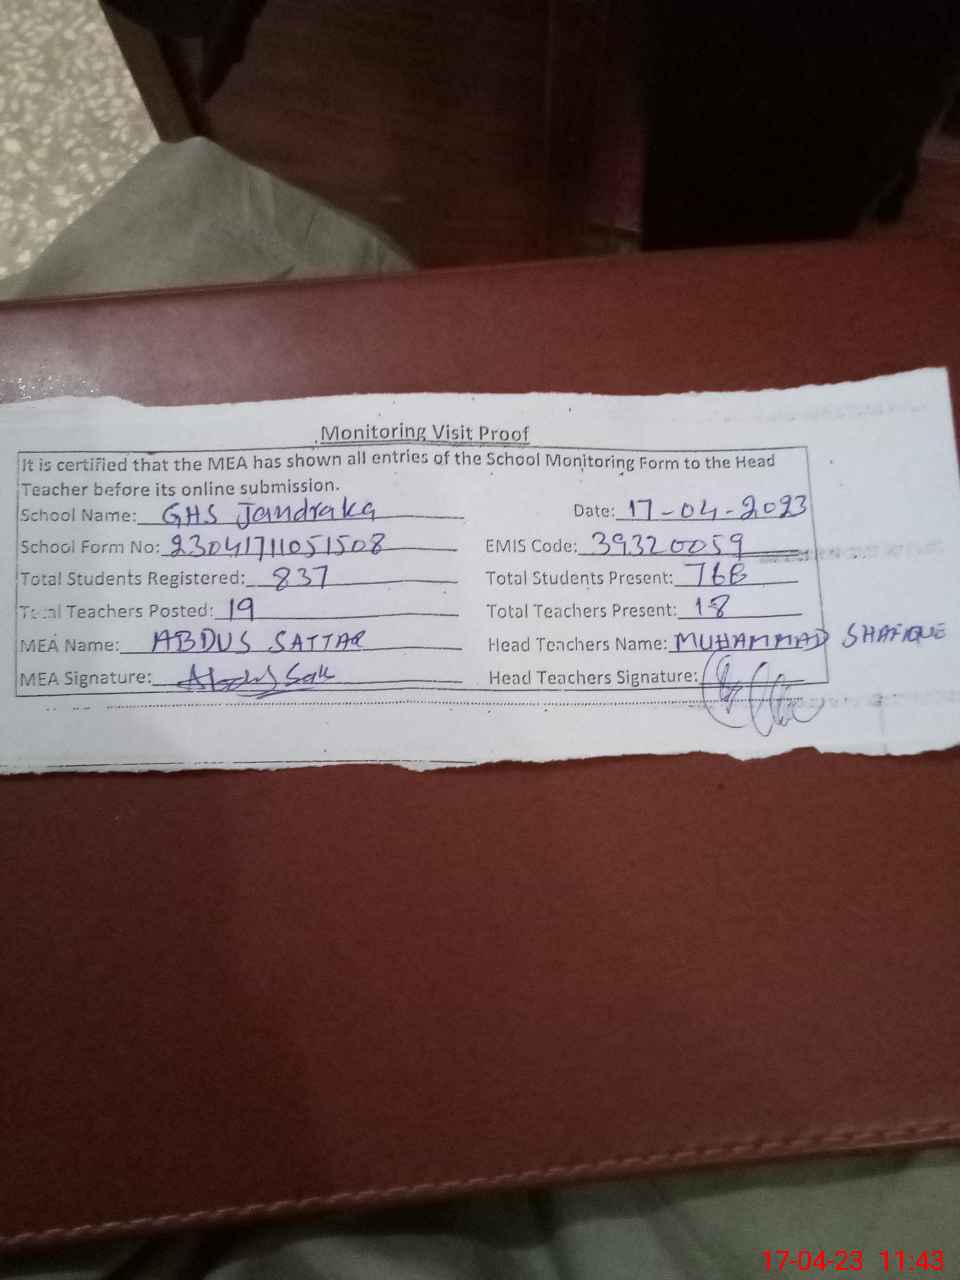 Monitoring Visit Proof
It is certified that the MEA has shown all entries of the School Monitoring Form to the Head
Teacher before its online submission.
School Name: GHS Jandraka Date: 17-04-2023
School Form No: 23041711051508 EMIS Code: 39320059
Total Students Registered: 837 Total Students Present:
Total Teachers Posted: 19 Total Teachers Present: 18
MEA Name: ABDUS SATTAR Head Teachers Name: MUHAMMAD SHAFIQUE
MEA Signature: Head Teachers Signature:
17-04-23 11:43